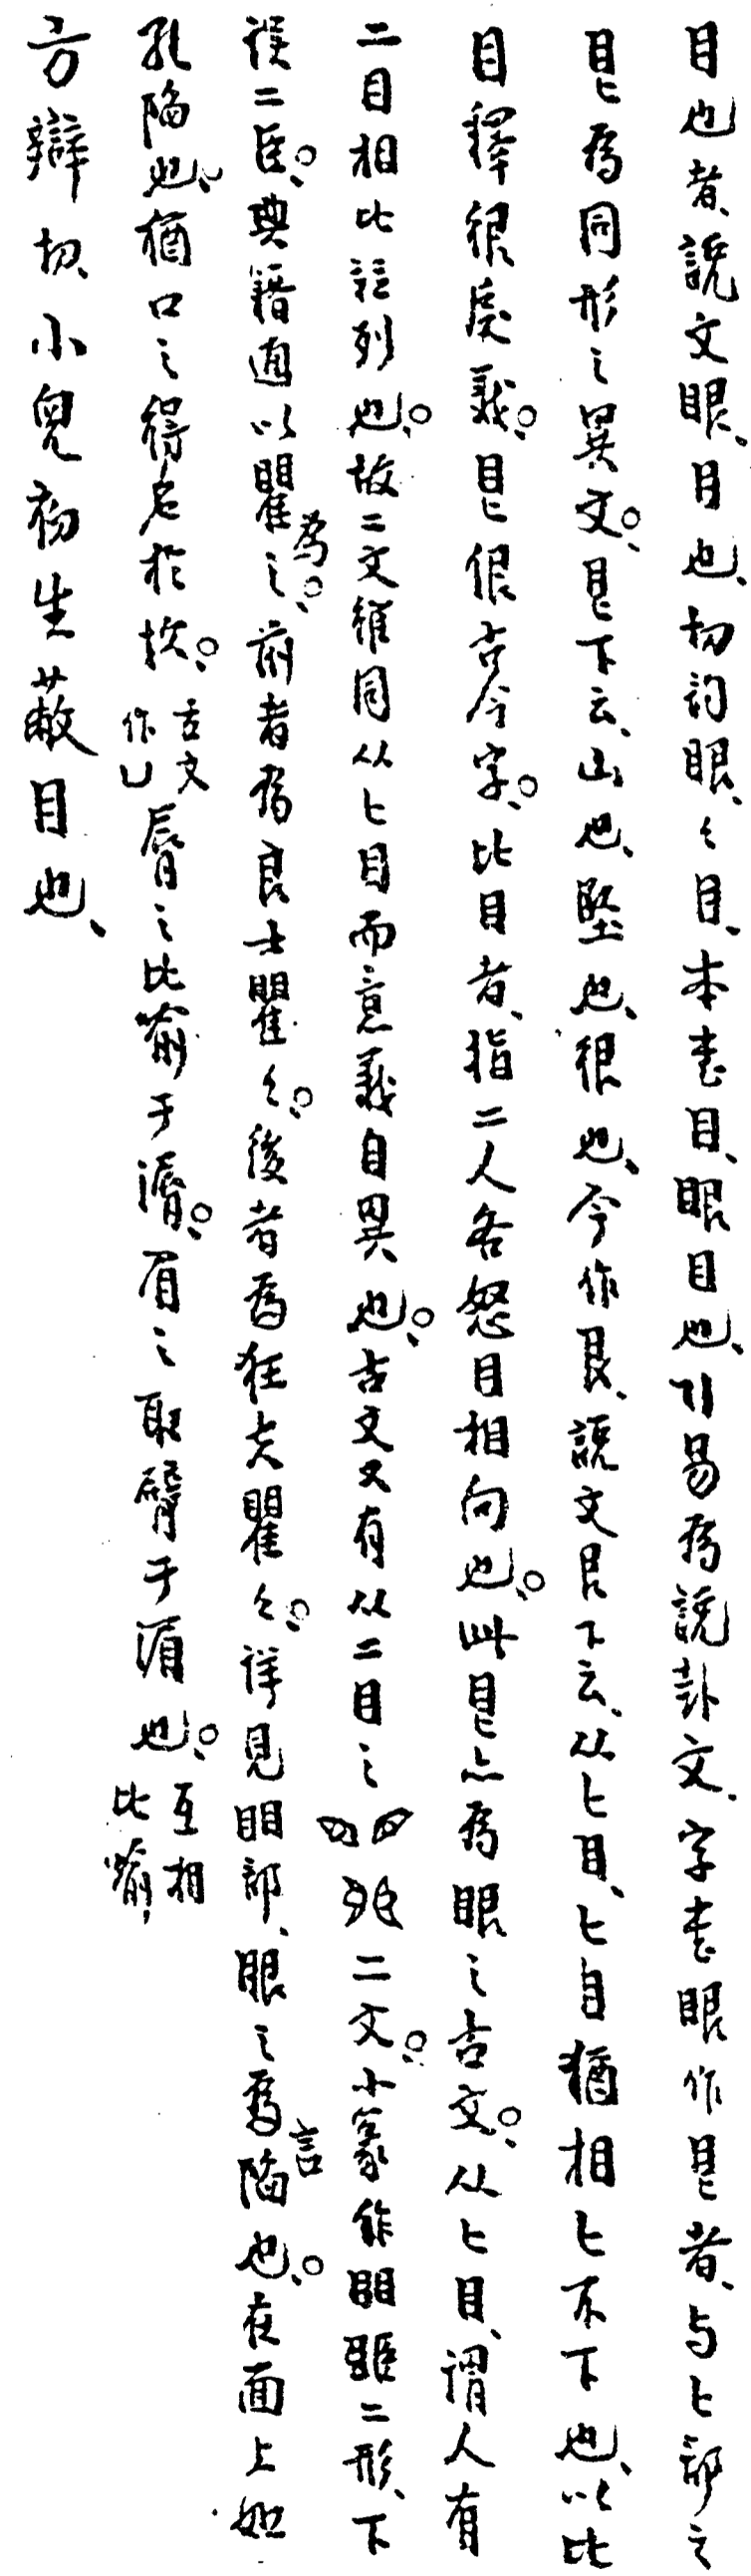 目也者、説文眼、目也、切韵眼、々目、本書目、眼目也、引易為説卦文、字書眼作㫐者、与匕部之
㫐為同形之異文。、㫐下云、山也、堅也、很也、今作艮、説文艮下云、从匕目、匕目猶相匕不下也、以比
目釋很戾義。、㫐佷古今字。、比目者、指二人各怒目相向也。、此㫐亦為眼之古文。、从匕目、謂人有
二目相比竝列也。、故二文雖同从匕目而意義自異也。、古文又有从二目之 二文。、小篆作䀠䀠二形、下
誤二臣。、典籍迺以瞿為之。、前者為良士瞿々。、後者為狂夫瞿々。、詳見䀠部、眼之為言陷也。、在面上如
孔陷也、猶口之得名於坎。、古文作凵脣之比喻于漘。、眉之取譬于湄也。、互相比喻、
方辯切、小兒初生蔽目也、